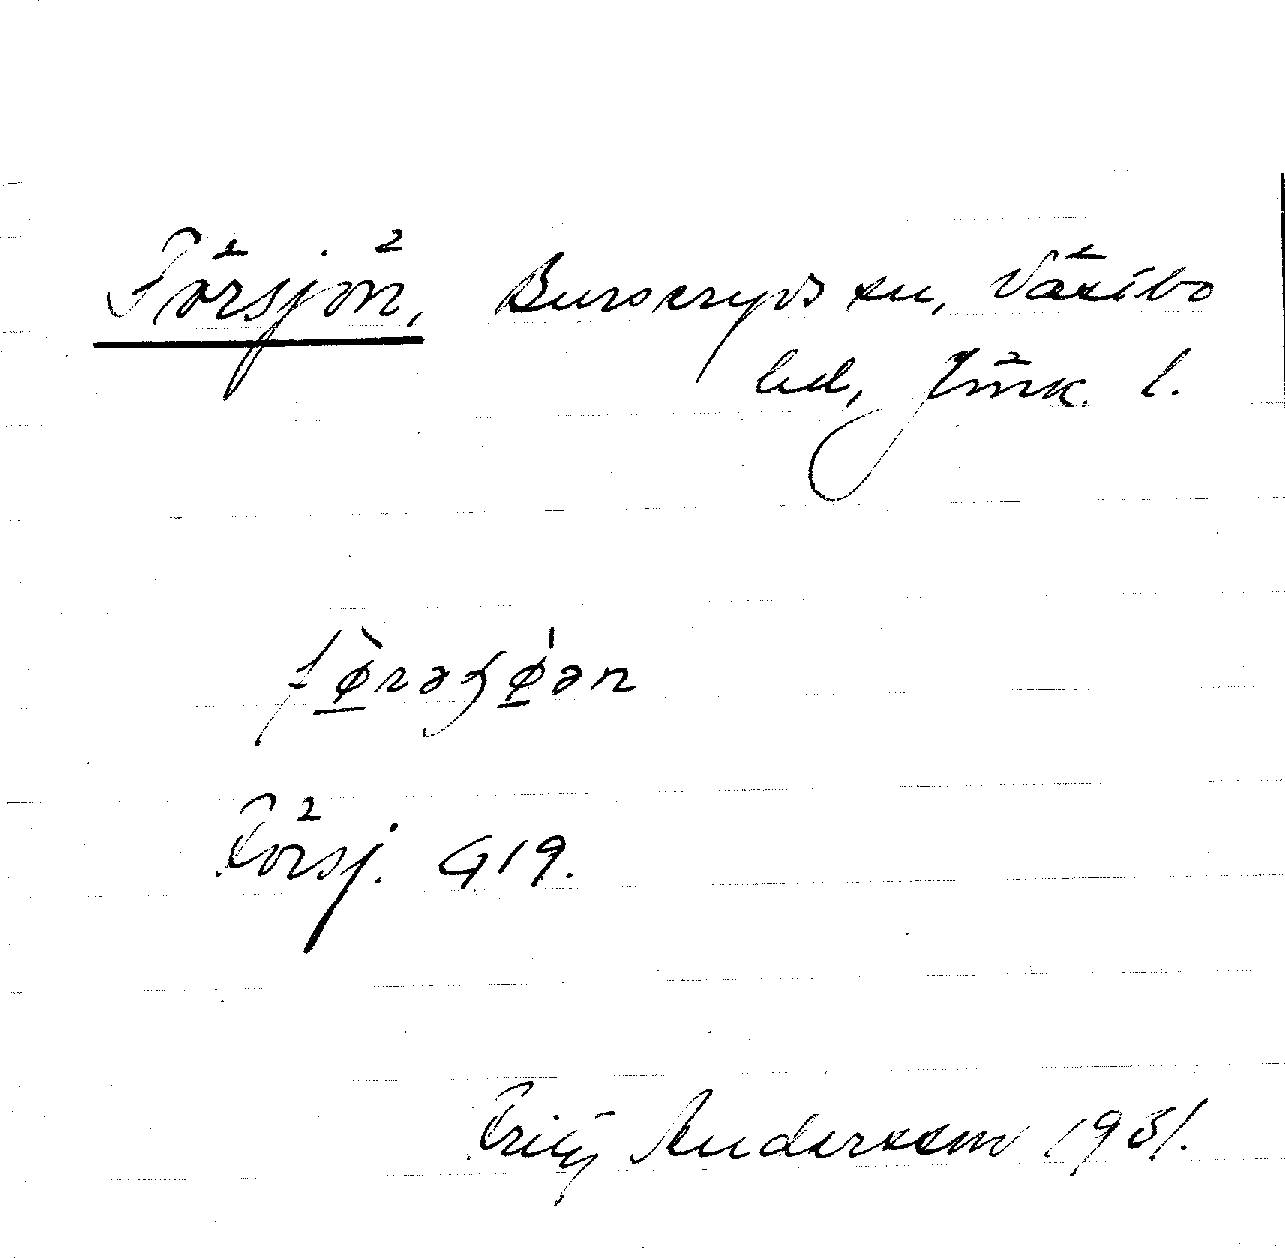 Försjön, Burseryds sn, Västbo
hd, Jönk. l.
fø̀rəʂø̍ən
Försj. G19.
Fritz Andersson 1931.